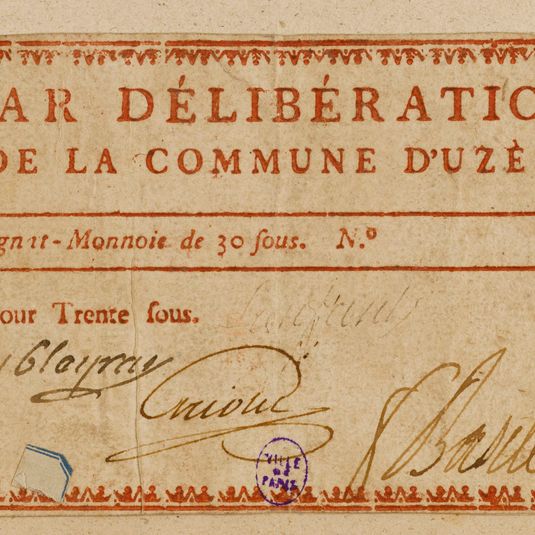 AR DÉLIBÉRATIO
DE LA COMMUNE D'UZÈ
gnat-Monnoie de 30 ſous. N.º
our Trente ſous.
VILLE
DE
PARIS